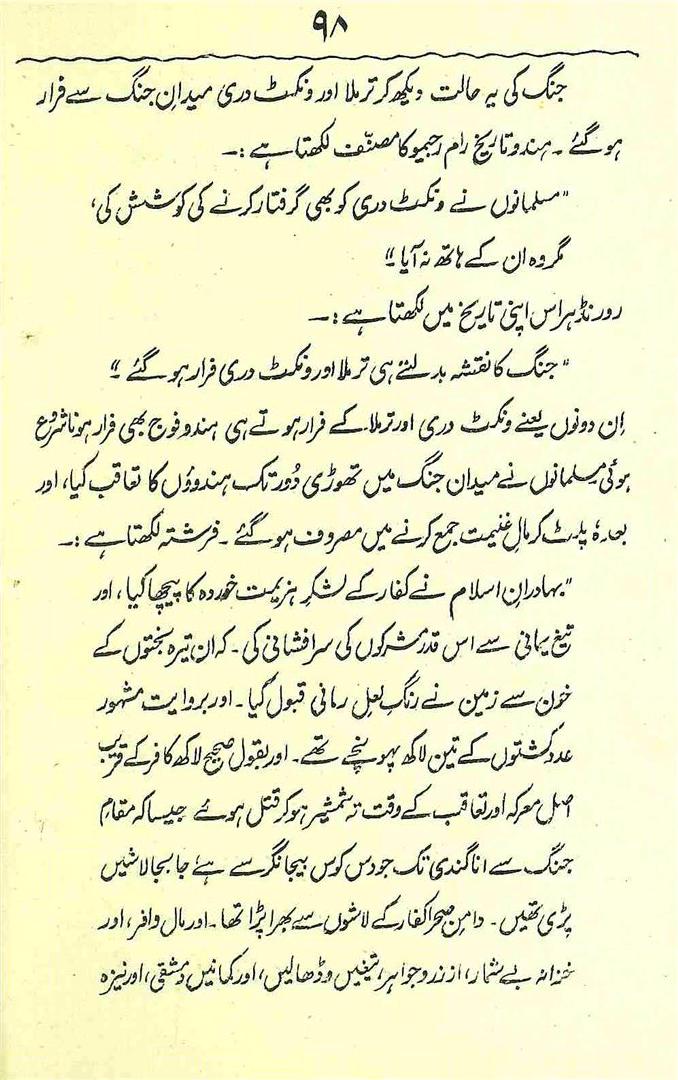 ۹۸
جنگ کی یہ حالت دیکھ کر ترملا اور ونکٹ دری میدانِ جنگ سے فرار
ہو گئے ۔ ہندو تاریخ رام رجیو کا مصنّف لکھتا ہے :۔
"مسلمانوں نے ونکٹ دری کو بھی گرفتار کرنے کی کوشش کی،
مگر وہ ان کے ہاتھ نہ آیا"
رورنڈ ہراس اپنی تاریخ میں لکھتا ہے :۔
"جنگ کا نقشہ بدلتے ہی ترملا اور ونکٹ دری فرار ہو گئے"
اِن دونوں یعنے ونکٹ دری اور ترملا کے فرار ہوتے ہی ہندو فوج بھی فرار ہونا شروع
ہوئی مسلمانوں نے میدان جنگ میں تھوڑی دُور تک ہندوؤں کا تعاقب کیا، اور
بعدہٗ پلٹ کر مالِ غنیمت جمع کرنے میں مصروف ہو گئے ۔ فرشتہ لکھتا ہے :۔
"بہادرانِ اسلام نے کفار کے لشکرِ ہزیمت خوردہ کا پیچھا کیا، اور
تیغ یمانی سے اس قدر مشرکوں کی سرافشانی کی ۔ کہ ان تیرہ بختوں کے
خون سے زمین نے رنگِ لعلِ رمانی قبول کیا ۔ اور بروایت مشہور
عدد کشتوں کے تین لاکھ پہونچے تھے ۔ اور بقول صحیح لاکھ کافر کے قریب
اصل معرکہ اور تعاقب کے وقت تہ شمشیر ہو کر قتل ہوئے جیسا کہ مقامِ
جنگ سے اناگندی تک جو دس کوس بیجانگر سے ہے جابجا لاشیں
پڑی تھیں ۔ دامنِ صحرا کفار کے لاشوں سے بھرا پڑا تھا ۔ اور مال وافر، اور
خزانہ بے شمار، از زر و جواہر، تیغیں و ڈھالیں، اور کمانیں دمشقی، اور نیزہ